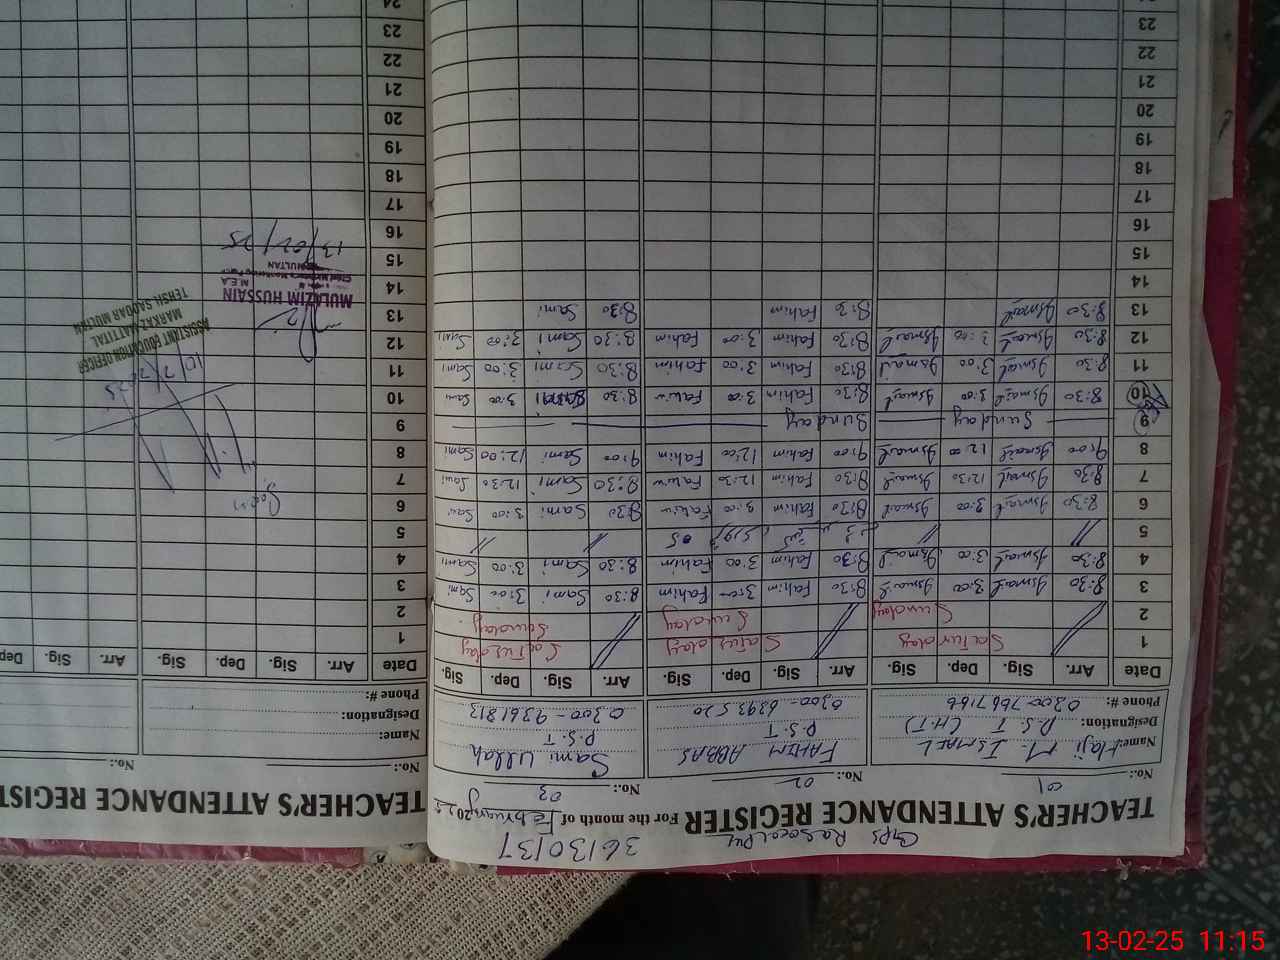 GPS Rasool Pur 36130137
TEACHER'S ATTENDANCE REGISTER For the month of February 2025
No.: 01 No.: 02 No.: 03
Name: Haji M. ISMAEL FAHIM ABBAS Sami Ullah
Designation: P.S.T (H.T) P.S.T P.S.T
Phone #: 0300-7667166 0300-6393520 0300-9361813
Date Arr. Sig. Dep. Sig. Arr. Sig. Dep. Sig. Arr. Sig. Dep. Sig.
1 Saturday Saturday Saturday
2 Sunday Sunday Sunday
3 8:30 Ismail 3:00 Ismail 8:30 Fahim 3:00 Fahim 8:30 Sami 3:00 Sami
4 8:30 Ismail 3:00 Ismail 8:30 Fahim 3:00 Fahim 8:30 Sami 3:00 Sami
5 // // // //
6 8:30 Ismail 3:00 Ismail 8:30 Fahim 3:00 Fahim 8:30 Sami 3:00 Sami
7 8:30 Ismail 12:30 Ismail 8:30 Fahim 12:30 Fahim 8:30 Sami 12:30 Sami
8 9:00 Ismail 12:00 Ismail 9:00 Fahim 12:00 Fahim 9:00 Sami 12:00 Sami
9 Sunday Sunday
10 8:30 Ismail 3:00 Ismail 8:30 Fahim 3:00 Fahim 8:30 Sami 3:00 Sami
11 8:30 Ismail 3:00 Ismail 8:30 Fahim 3:00 Fahim 8:30 Sami 3:00 Sami
12 8:30 Ismail 3:00 Ismail 8:30 Fahim 3:00 Fahim 8:30 Sami 3:00 Sami
13 8:30 Ismail 8:30 Fahim 8:30 Sami
14
15
16
17
18
19
20
21
22
23
TEACHER'S ATTENDANCE REGIST
No.: No.:
Name:
Designation:
Phone #:
Date Arr. Sig. Dep. Sig. Arr. Sig. Dep
1
2
3
4
5
6
7
8
9
10
11
12
13
14
15
16
17
18
19
20
21
22
23
24
10/2/2025
ASSISTANT EDUCATION OFFICER
MARKAZ MATTITAL
TEHSIL SADDAR MULTAN
MULAZIM HUSSAIN
M.E.A
MULTAN
13/02/25
13-02-25 11:15